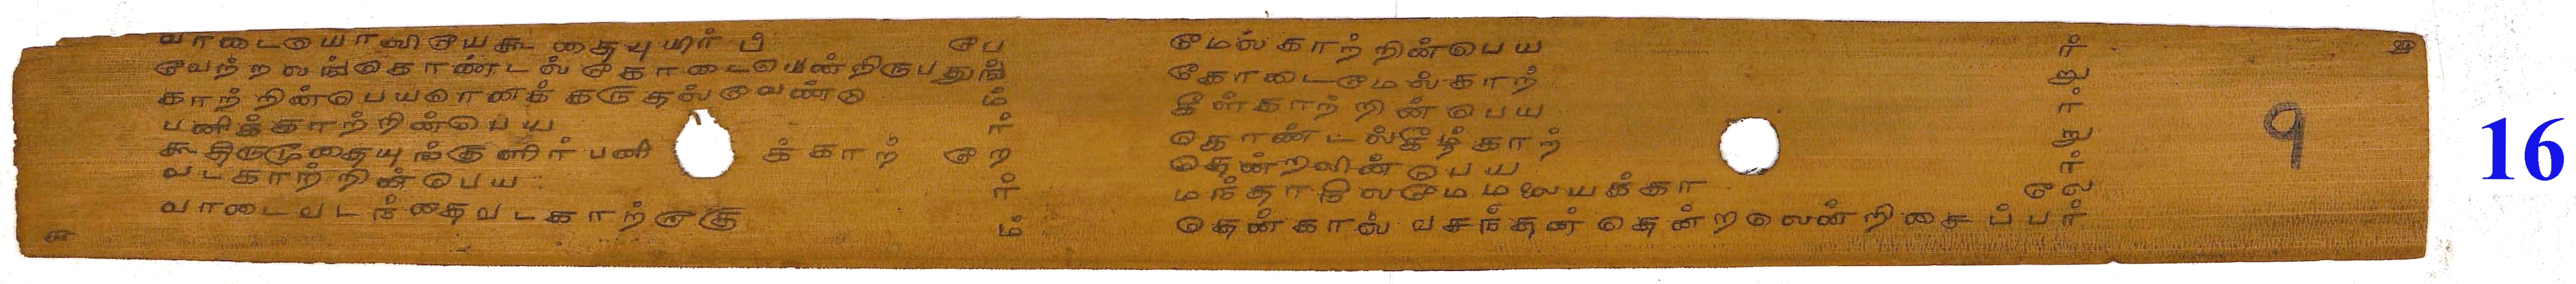 வாடையொலியேயகூதையுயிர்ப் பே
வேற்றலங்கொண்டல்கோடையென்றிருபதுங்
காற்றின்பெயரெனக் கருதல்வேண்டு ம்
பனிக்காற்றின்பெய ர்
கூதிருமூதையுங்குளிர்பனி க்காற் றே
வடகாற்றின்பெய ர்
வாடைவடந்தைவடகாற்றாகு ம்
மேல்காற்றின்பெய ர்
கோடைமேல்காற் று
கீள்காற்றின்பெய ர்
கொண்டல்கீழ்காற் று
தென்றலின்பெய ர்
மந்தாநிலமேமலையக்கா லே
தென்கால் வசந்தன்தென்றலென்றிசைப்பர்
9
16